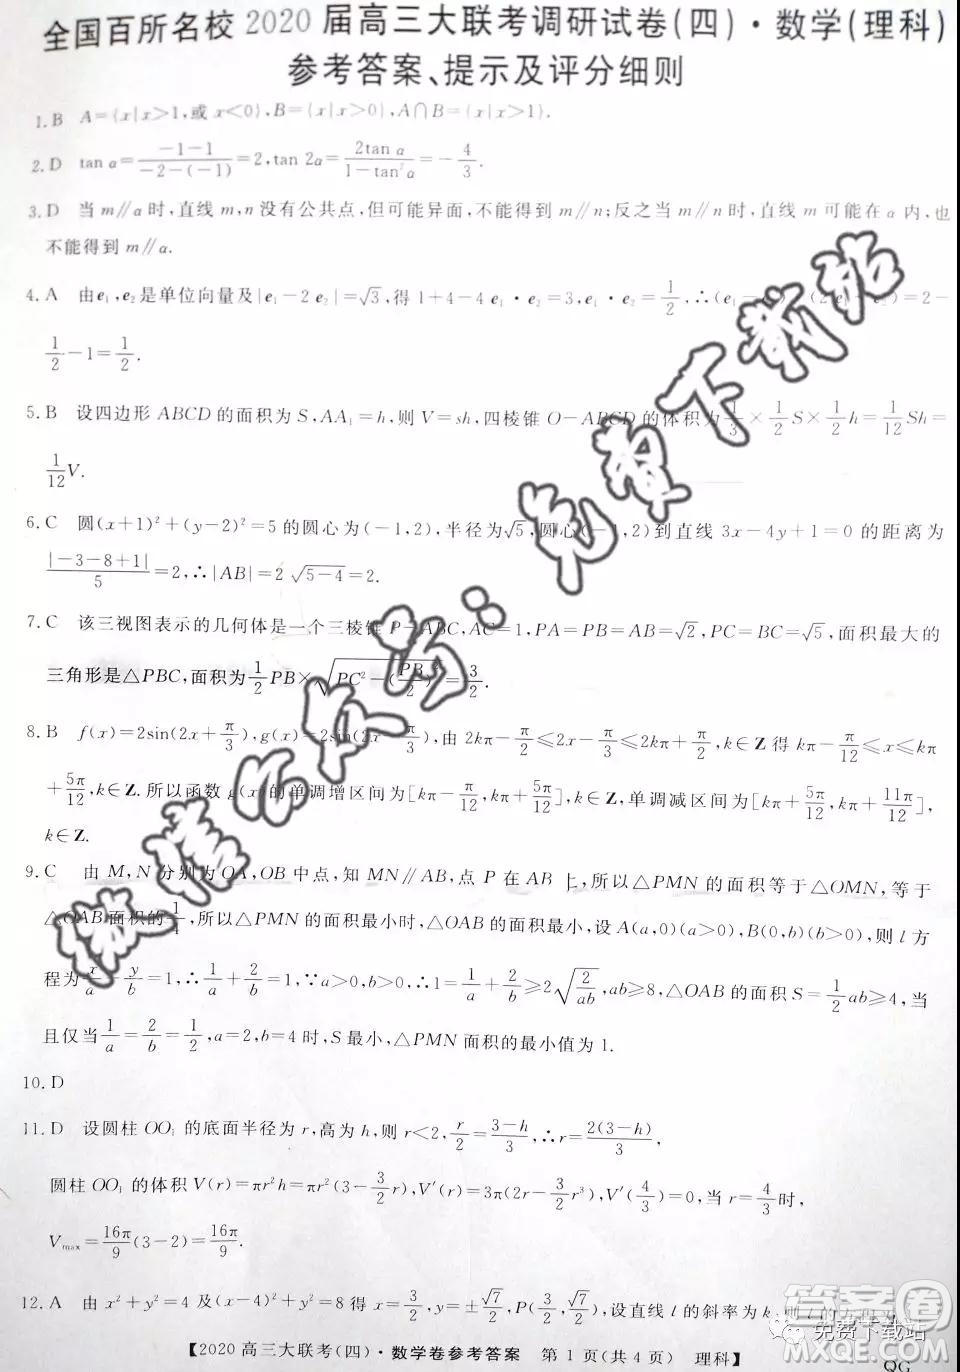 全国百所名校2020届高三大联考调研试卷(四)·数学(理科)
参考答案、提示及评分细则
1.B A={x|x>1,或x<0},B={x|x>0},A∩B={x|x>1}.
2.D tan α=(-1-1)/(-2-(-1))=2,tan 2α=2tan α/(1-tan²α)=-4/3.
3.D 当m∥α时,直线m,n没有公共点,但可能异面,不能得到m∥n;反之当m∥n时,直线m可能在α内,也
不能得到m∥α.
4.A 由e₁,e₂是单位向量及|e₁-2e₂|=√3,得1+4-4e₁·e₂=3,e₁·e₂=1/2,∴(e₁ e₂) (2e e₂)=2-
1/2-1=1/2.
5.B 设四边形ABCD的面积为S,AA₁=h,则V=sh,四棱锥O-ABCD的体积为1/3×1/2S×1/2h=1/12Sh=
1/12V.
6.C 圆(x+1)²+(y-2)²=5的圆心为(-1,2),半径为√5,圆心(-1,2)到直线3x-4y+1=0的距离为
|-3-8+1|/5=2,∴|AB|=2√(5-4)=2.
7.C 该三视图表示的几何体是一个三棱锥P-ABC,AC=1,PA=PB=AB=√2,PC=BC=√5,面积最大的
三角形是△PBC,面积为1/2PB×√(PC²-(PB/2)²)=3/2.
8.B f(x)=2sin(2x+π/3),g(x)=2sin(2x-π/3),由2kπ-π/2≤2x-π/3≤2kπ+π/2,k∈Z得kπ-π/12≤x≤kπ
+5π/12,k∈Z.所以函数g(x)的单调增区间为[kπ-π/12,kπ+5π/12],单调减区间为[kπ+5π/12,kπ+11π/12],
k∈Z.
9.C 由M,N分别为OA,OB中点,知MN∥AB,点P在AB上,所以△PMN的面积等于△OMN,等于
△OAB面积的1/4,所以△PMN的面积最小时,△OAB的面积最小,设A(a,0)(a>0),B(0,b)(b>0),则l方
程为x/a+y/b=1,∴1/a+2/b=1,∵a>0,b>0,∴1=1/a+2/b≥2√(2/ab),ab≥8,△OAB的面积S=1/2ab≥4,当
且仅当1/a=2/b=1/2,即a=2,b=4时,S最小,△PMN的面积的最小值为1.
10.D
11.D 设圆柱OO₁的底面半径为r,高为h,则r<2,r/2=(3-h)/3,∴r=2(3-h)/3,
圆柱OO₁的体积V(r)=πr²h=πr²(3-3/2r)=π(3r²-3/2r³),V′(r)=π(6r-9/2r²)=0,当r=4/3时,
V_max=16π/9(3-2)=16π/9.
12.A 由x²+y²=4及(x-4)²+y²=8得x=3/2,y=±√7/2,设直线l的斜率为k,则l的方程为
【2020高三大联考(四)·数学卷参考答案 第1页(共4页) 理科】
QG
微信公众号:免费下载站
免费下载站
答案圈